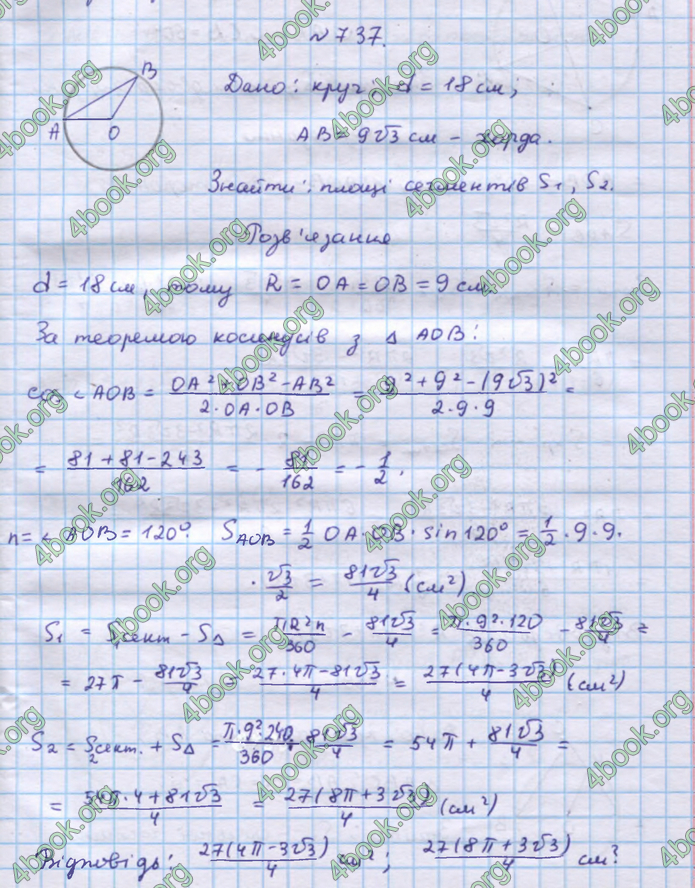 №737.
B
A
O
Дано: круг, d = 18 см,
AB = 9√3 см – хорда.
Знайти: площі сегментів S₁, S₂.
Розв'язання
d = 18 см, тому R = OA = OB = 9 см.
За теоремою косинусів з △ AOB:
cos ∠AOB = (OA² + OB² - AB²)/(2·OA·OB) = (9² + 9² - (9√3)²)/(2·9·9) =
= (81 + 81 - 243)/162 = - 81/162 = - 1/2.
n = ∠ AOB = 120°. S_AOB = 1/2 OA·OB·sin 120° = 1/2 · 9 · 9.
· √3/2 = 81√3/4 (см²)
S₁ = S₁сект - S△ = πR²n/360 - 81√3/4 = π·9²·120/360 - 81√3/4 =
= 27π - 81√3/4 = (27·4π - 81√3)/4 = 27(4π - 3√3)/4 (см²)
S₂ = S₂сект. + S△ = π·9²·240/360 + 81√3/4 = 54π + 81√3/4 =
= (54π·4 + 81√3)/4 = 27(8π + 3√3)/4 (см²)
Відповідь: 27(4π - 3√3)/4 см²; 27(8π + 3√3)/4 см².
4book.org